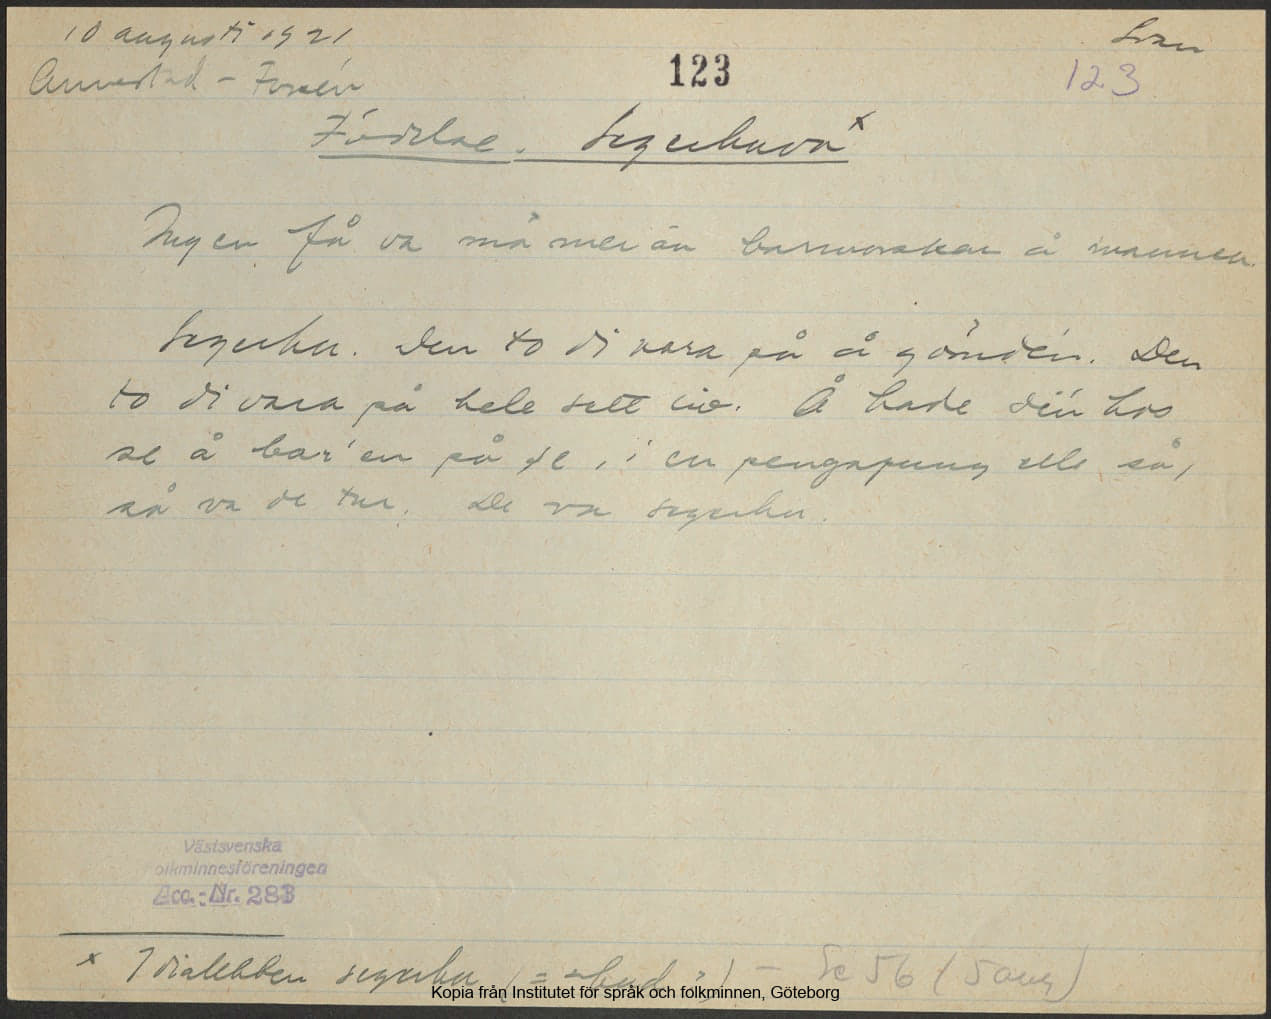 10 augusti 1921
123
123
Födelse. Segerhuva x
Ingen få va må mer än barnmorskan å mannen.
Segerhu. Den to di vara på å gömden. Den
to di vara på hele sett liv. Å hade dén hos
se å bar'en på se, i en pengapung elle så,
så va de tur. De va segerhu.
Västsvenska
olkminnesföreningen
Acc.-Nr. 283
x I dialekten segerhu (= -hud?) – Se 56 (5 aug)
Kopia från Institutet för språk och folkminnen, Göteborg